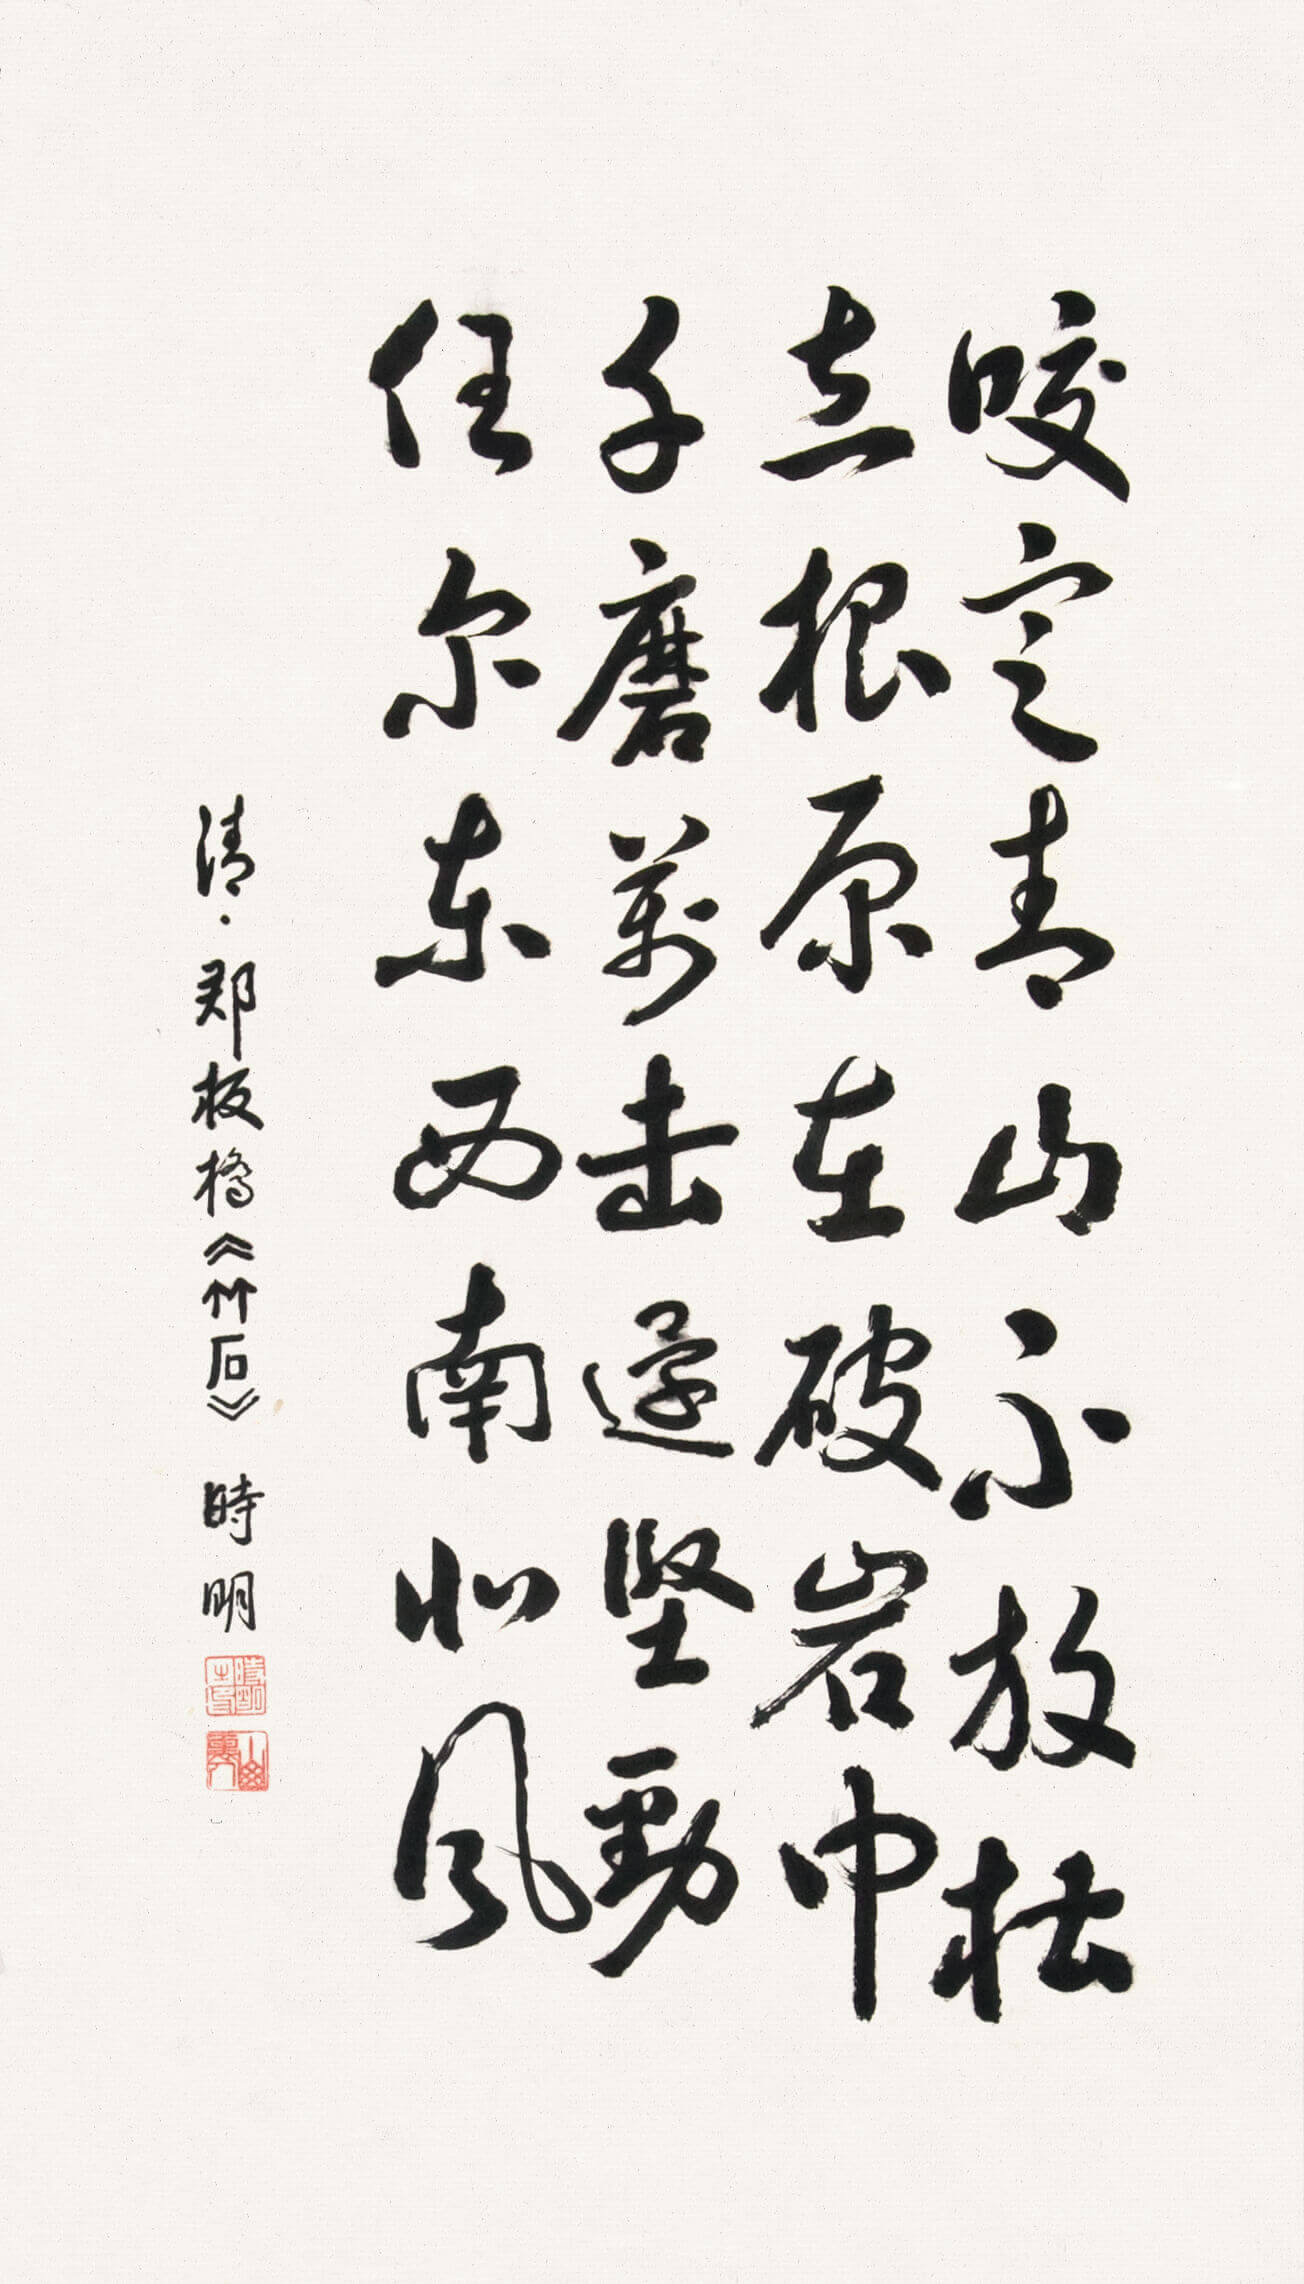 咬定青山不放松
立根原在破岩中
千磨萬击還坚勁
任尔东西南北风
清·郑板橋《竹石》 時明
時明之印